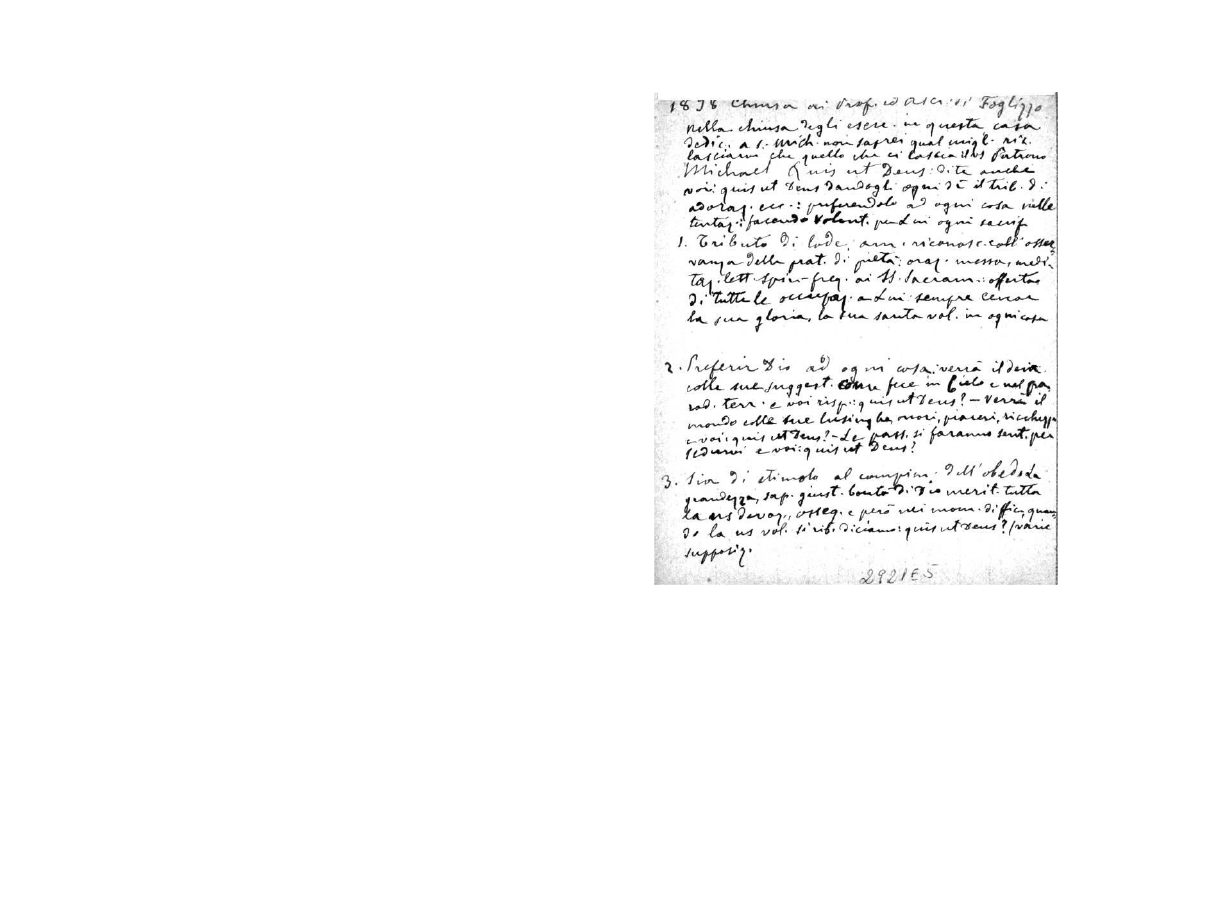 1898 Chiusa ai Prof. ed Ascr. di Foglizzo
nella chiusa degli eserc. in questa casa
dedic. a S. Mich. non saprei qual migl. ric.
lasciarvi che quello che ci lascia il ns Patrono
Michael Quis ut Deus: dite anche
voi: quis ut Deus dandogli ogni dì il trib. di
adoraz. ecc.: preferendolo ad ogni cosa nelle
tentaz.: facendo volent. per Lui ogni sacrif.
1. Tributo di lode, am. riconosc. coll'osser
vanza delle prat. di pietà; oraz. messa, medi-
taz. lett. spir. freq. ai SS. Sacram.: offerta
di tutte le occupaz. a Lui sempre cercar
la sua gloria, la sua santa vol. in ogni cosa
2. Preferir Dio ad ogni cosa: verrà il dem.
colle sue suggest. come fece in Cielo e nel pa
rad. terr. e voi risp.: quis ut Deus? - Verrà il
mondo colle sue lusinghe, onori, piaceri, ricchezze
e voi: quis ut Deus? - Le pass. si faranno sent. per
sedurvi e voi: quis ut Deus?
3. Sia di stimolo al compim. dell'obbed. La
grandezza, sap. giust. bontà di Dio merit. tutta
la ns devoz., osseq. e però nei mom. diffic, quan
do la ns vol. si rib. diciamo: quis ut Deus? (varie
supposiz.
2921E5